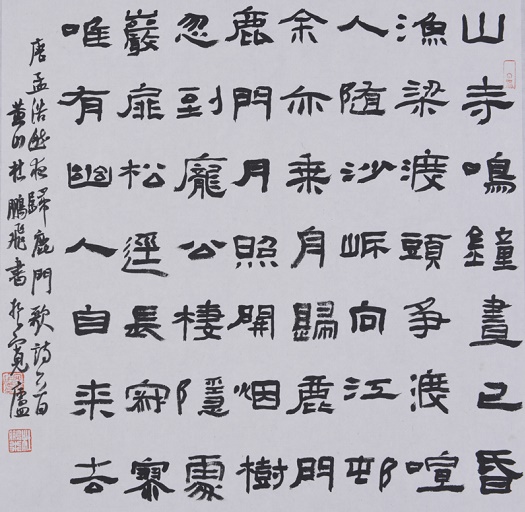 山寺鳴鐘晝已昏
漁梁渡頭爭渡喧
人隨沙岸向江邨
余亦乘舟歸鹿門
鹿門月照開烟樹
忽到龐公棲隱處
巖扉松逕長寂寥
唯有幽人自来去
唐孟浩然夜歸鹿門歌詩
黄山鵬飛書於寬廬